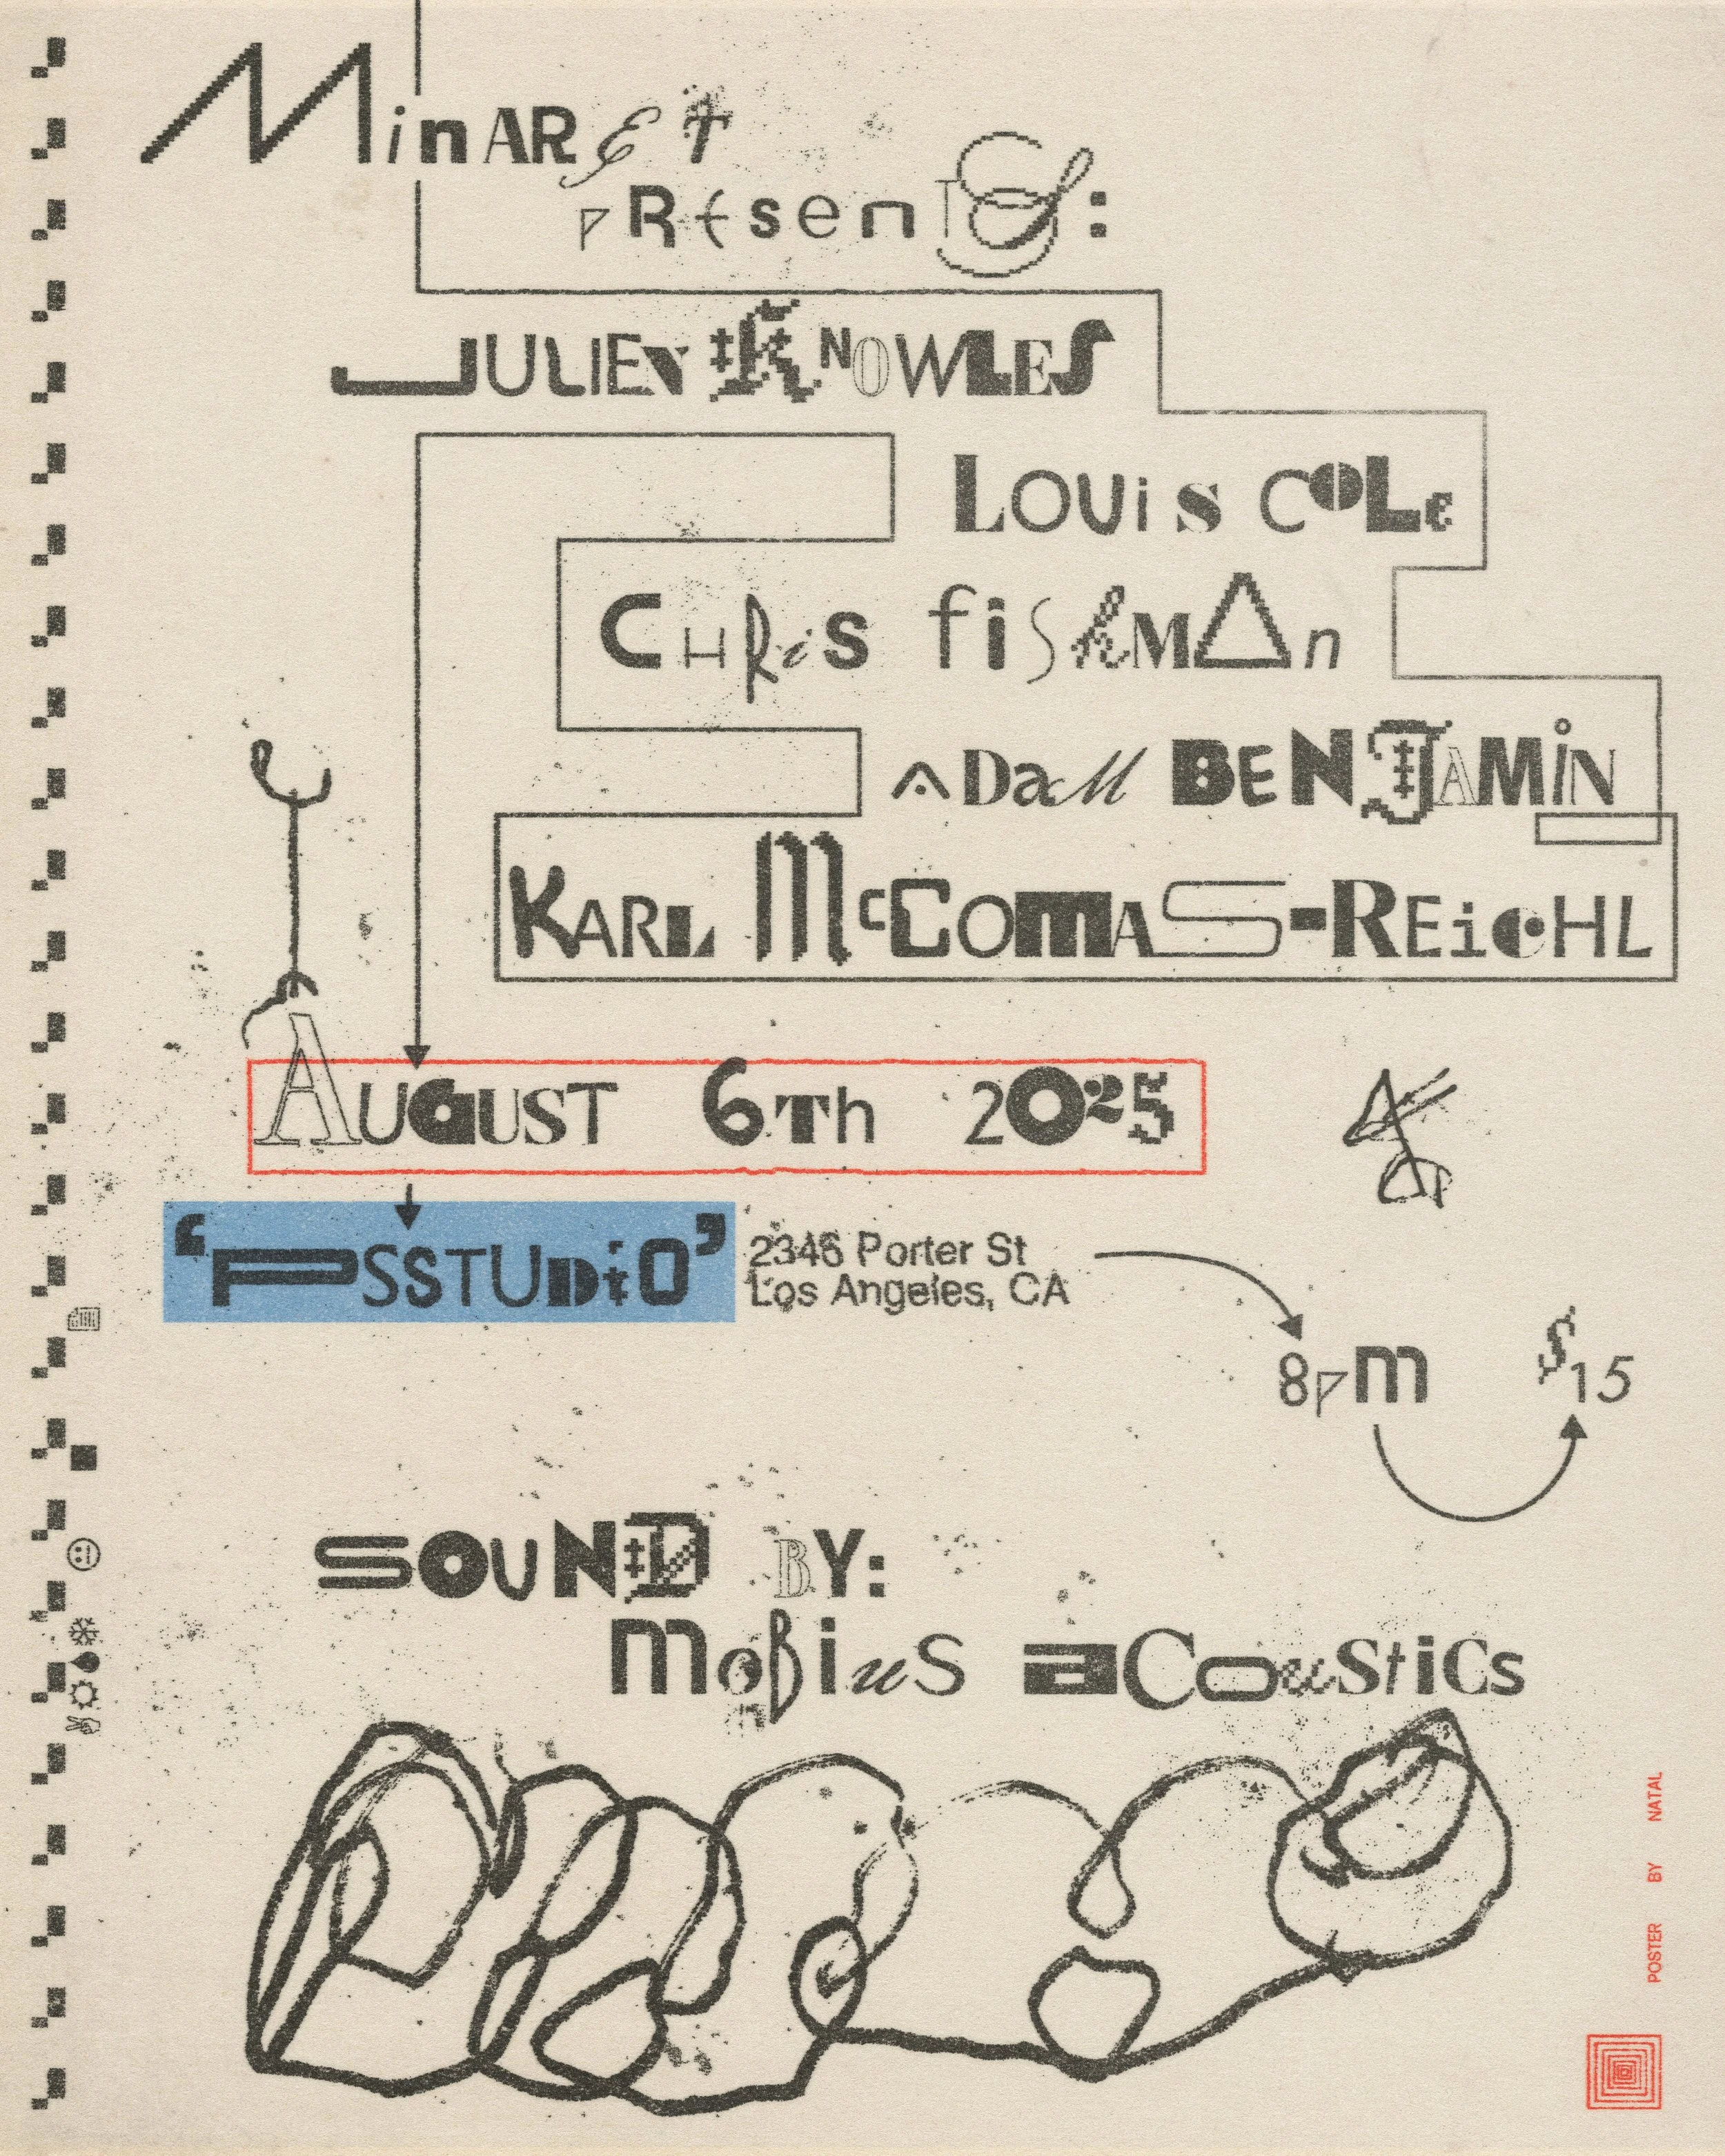 MinARET
pResenTS:
JULIEN KNOWLES
LOUiS COLe
CHRiS fiShMAn
ADaM BENJAMiN
KARL McCOmAS-REicHL
AUGUST 6Th 2025
‘PSSTUDiO’
2346 Porter St
Los Angeles, CA
8pm
$15
SOUND BY:
moBiuS aCouStiCs
POSTER BY NATAL